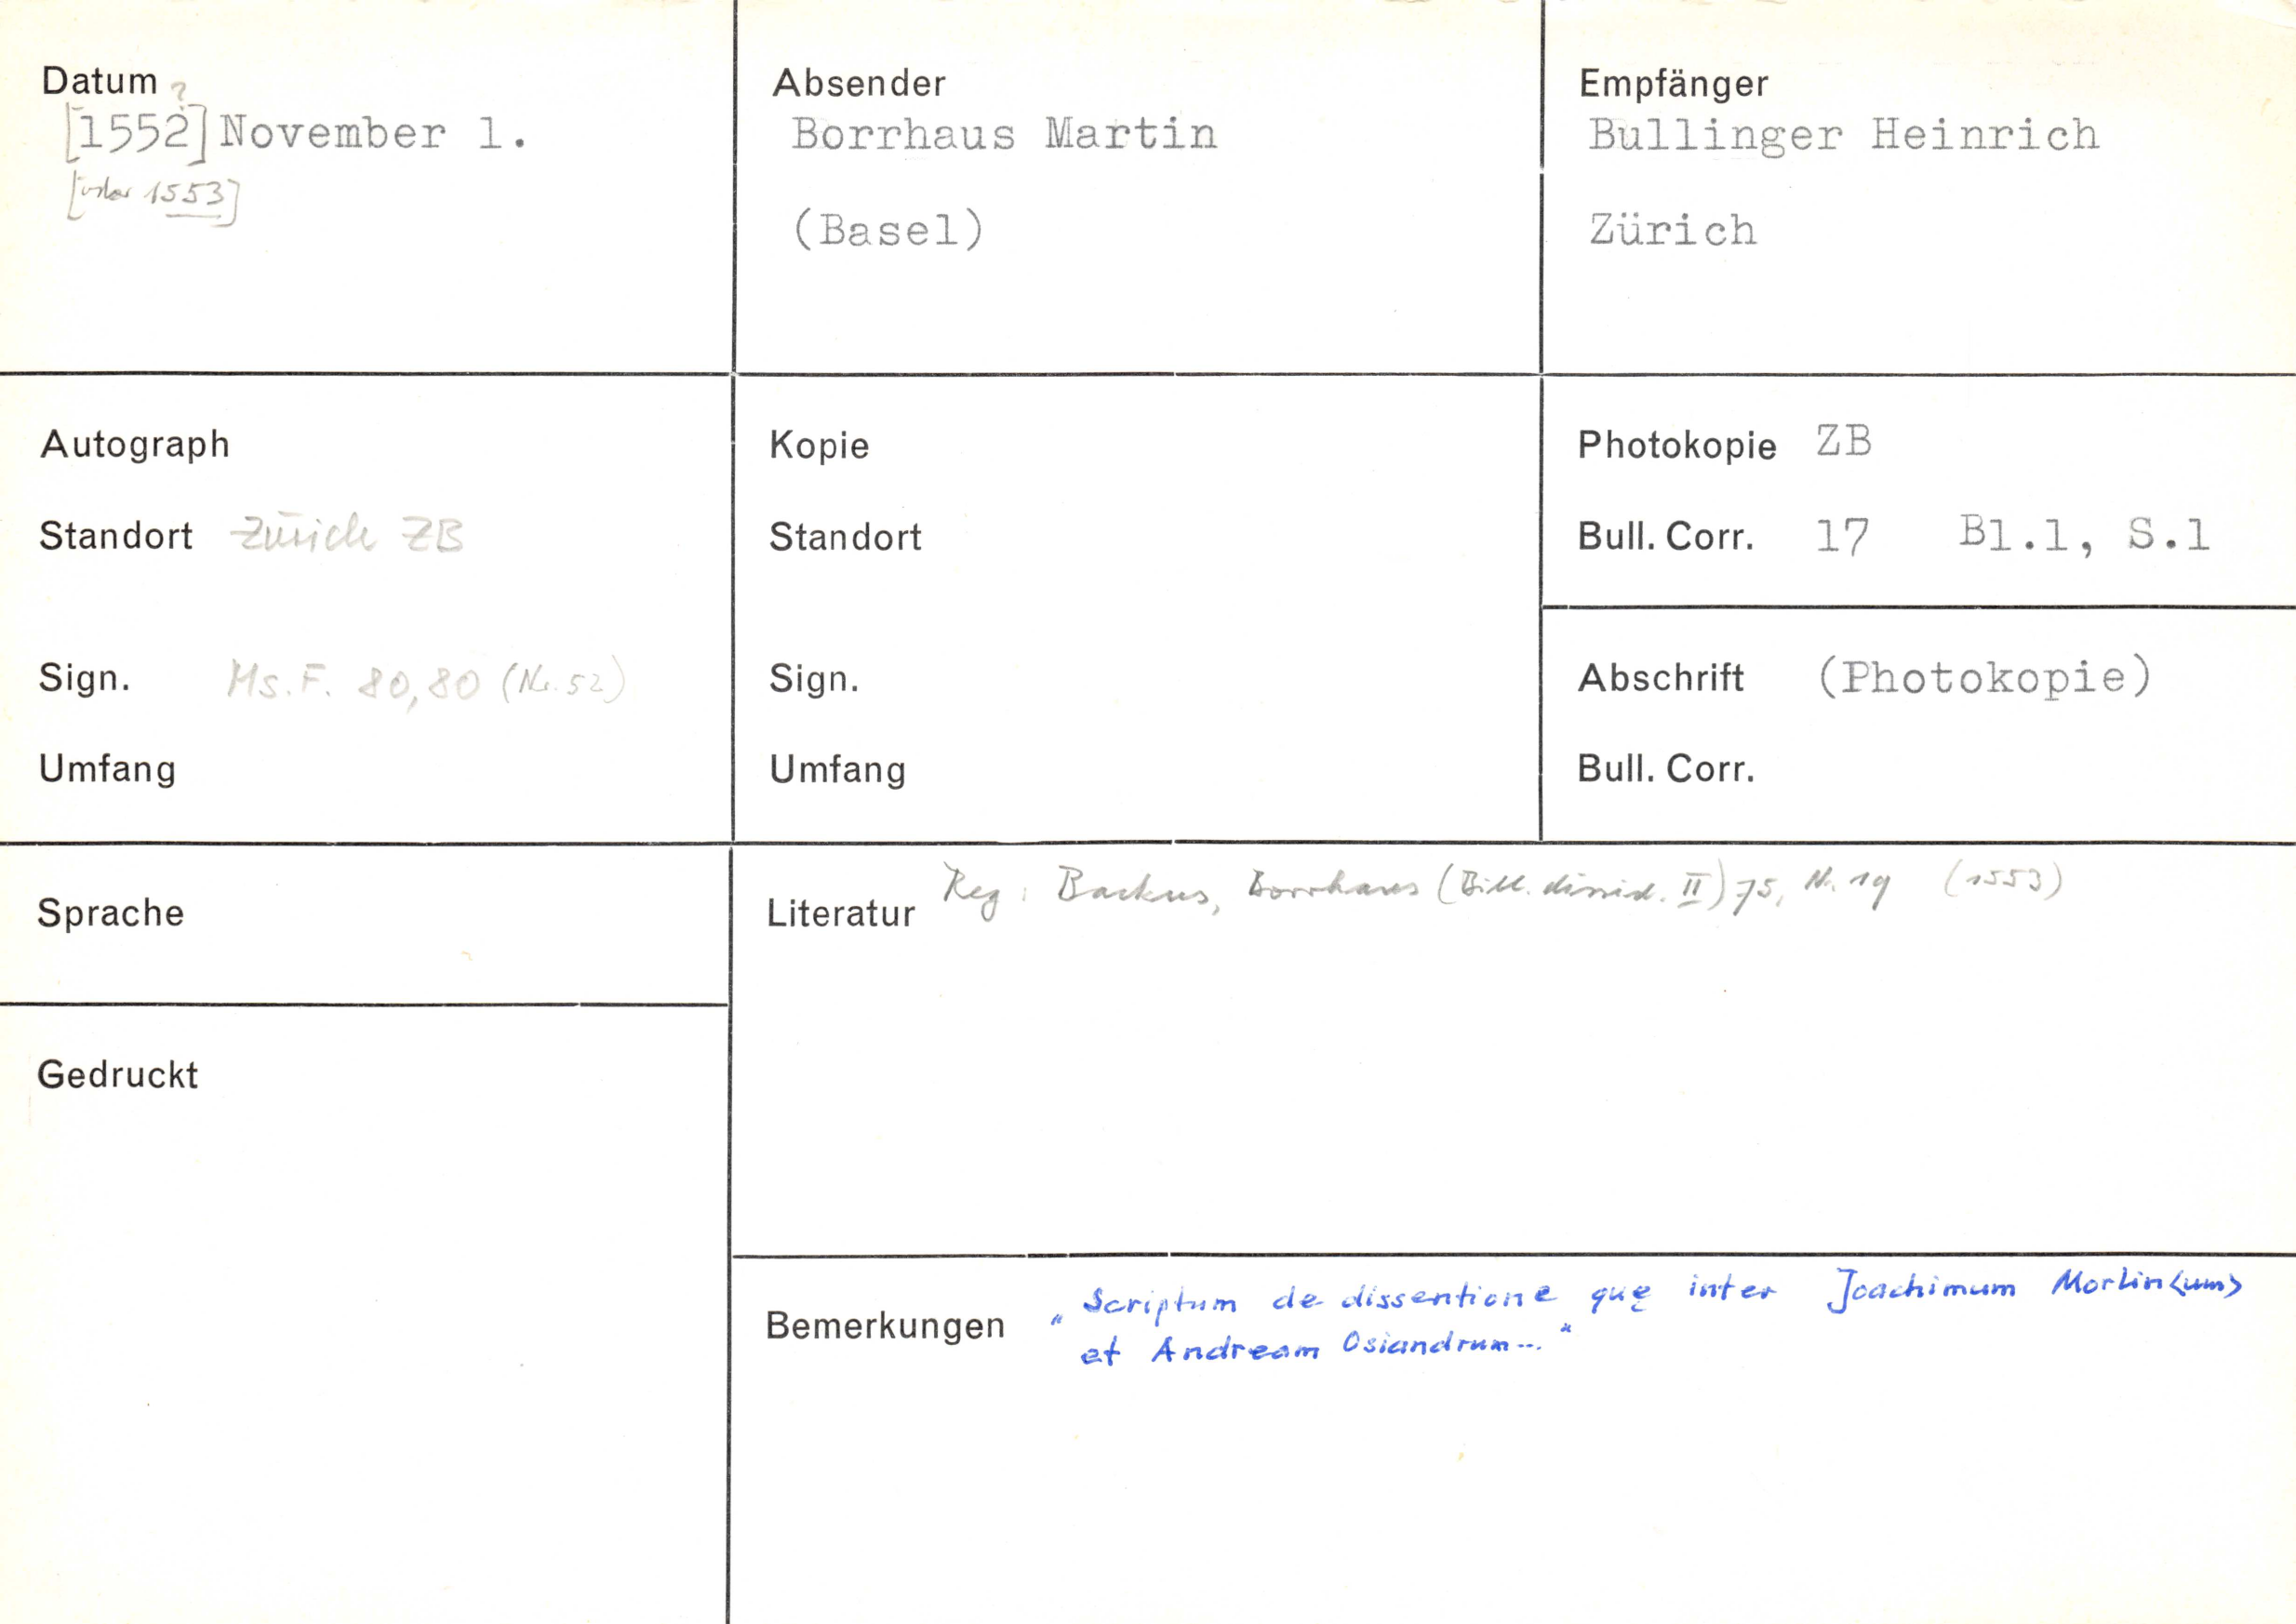 Datum ?
[1552] November 1.
[oder 1553]
Absender
Borrhaus Martin
(Basel)
Empfänger
Bullinger Heinrich
Zürich
Autograph
Standort Zürich ZB
Sign. Ms. F. 80,80 (Nr. 52)
Umfang
Kopie
Standort
Sign.
Umfang
Photokopie ZB
Bull. Corr. 17 Bl.1, S.1
Abschrift (Photokopie)
Bull. Corr.
Sprache
Gedruckt
Literatur Reg: Backus, Borrhaus (Bibl. dissid. II) 75, Nr. 19 (1553)
Bemerkungen "Scriptum de dissentione quę inter Joachimum Morlin<um>
et Andream Osiandrum..."